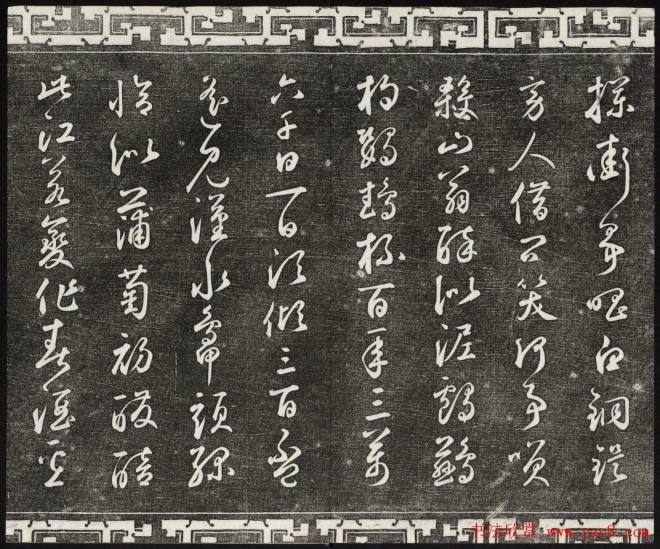 攔街爭唱白銅鍉
旁人借問笑何事咲
殺山翁醉似泥鸕鶿
杓鸚鵡杯百年三萬
六千日一日須傾三百盃
遙見漢水鴨頭綠
恰似蒲萄初醱醅
此江若變作春酒
书法欣赏 www.yac8.com